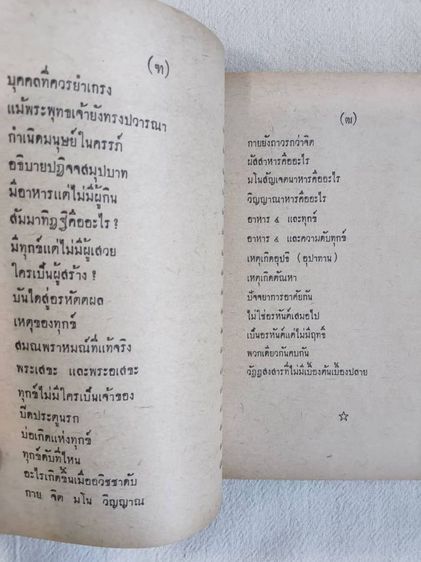 (ฑ)
บุคคลที่ควรยำเกรง
แม้พระพุทธเจ้ายังทรงปวารณา
กำเนิดมนุษย์ในครรภ์
อธิบายปฏิจจสมุปบาท
มีอาหารแต่ไม่มีผู้กิน
สัมมาทิฏฐิคืออะไร ?
มีทุกข์แต่ไม่มีผู้เสวย
ใครเป็นผู้สร้าง ?
บันใดสู่อรหัตตผล
เหตุของทุกข์
สมณพราหมณ์ที่แท้จริง
พระเสขะ และพระอเสขะ
ทุกข์ไม่มีใครเป็นเจ้าของ
ปิดประตูนรก
บ่อเกิดแห่งทุกข์
ทุกข์ดับที่ไหน
อะไรเกิดขึ้นเมื่ออวิชชาดับ
กาย จิต มโน วิญญาณ
(ฒ)
กายยังถาวรกว่าจิต
ผัสสาหารคืออะไร
มโนสัญเจตนาหารคืออะไร
วิญญาณาหารคืออะไร
อาหาร ๔ และทุกข์
อาหาร ๔ และความดับทุกข์
เหตุเกิดอุปธิ (อุปาทาน)
เหตุเกิดตัณหา
ปัจจยาการอาศัยกัน
ไม่ใช่อรหันต์เสมอไป
เป็นอรหันต์แต่ไม่มีฤทธิ์
พวกเดียวกันคบกัน
วัฏฏสงสารที่ไม่มีเบื้องต้นเบื้องปลาย